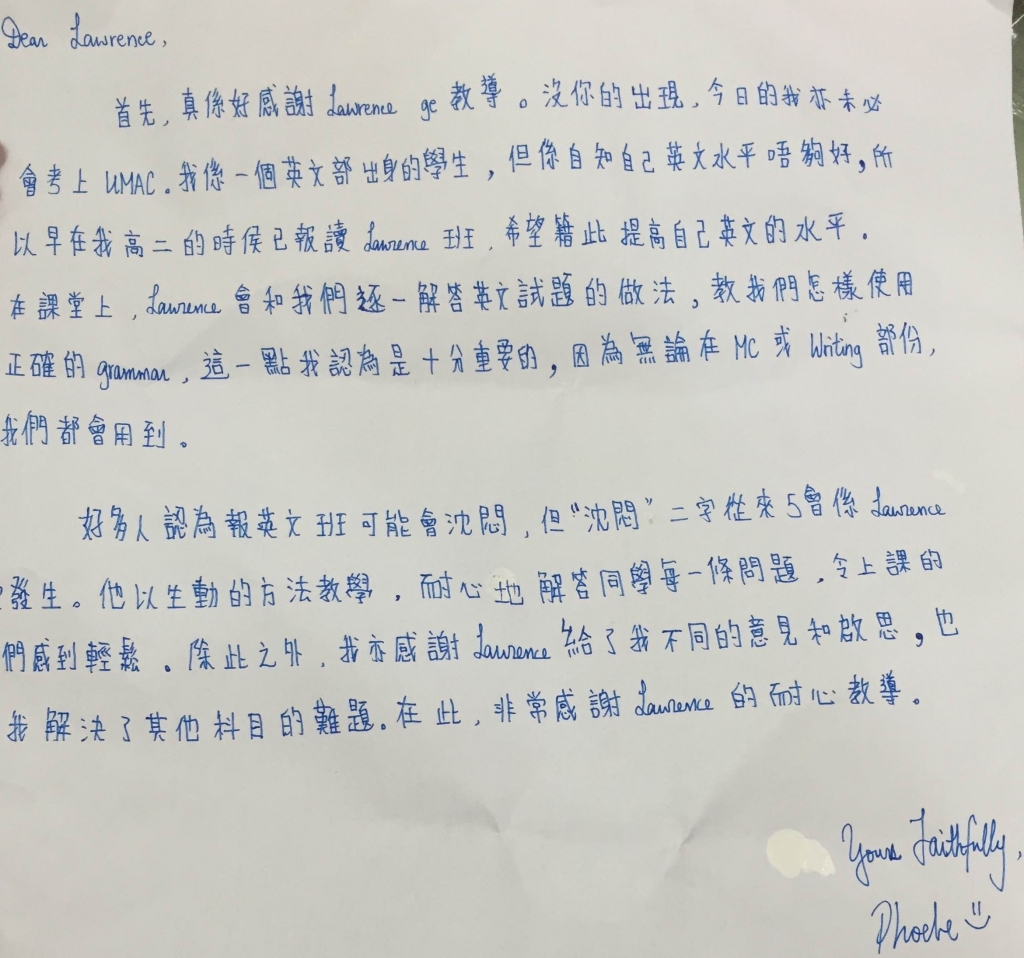 Dear Lawrence,
首先, 真係好感謝 Lawrence ge 教導。沒你的出現, 今日的我亦未必
會考上 UMAC. 我係一個英文部出身的學生, 但係自知自己英文水平唔夠好, 所
以早在我高二的時侯已報讀 Lawrence 班, 希望籍此提高自己英文的水平.
在課堂上, Lawrence 會和我們逐一解答英文試題的做法, 教我們怎樣使用
正確的 grammar, 這一點我認為是十分重要的, 因為無論在 MC 或 Writing 部份,
我們都會用到。
好多人認為報英文班可能會沈悶, 但"沈悶"二字從來5會係 Lawrence
發生。他以生動的方法教學, 耐心地解答同學每一條問題, 令上課的
們感到輕鬆. 除此之外, 我亦感謝 Lawrence 給了我不同的意見和啟思, 也
我解決了其他科目的難題. 在此, 非常感謝 Lawrence 的耐心教導。
Yours Faithfully,
Phoebe